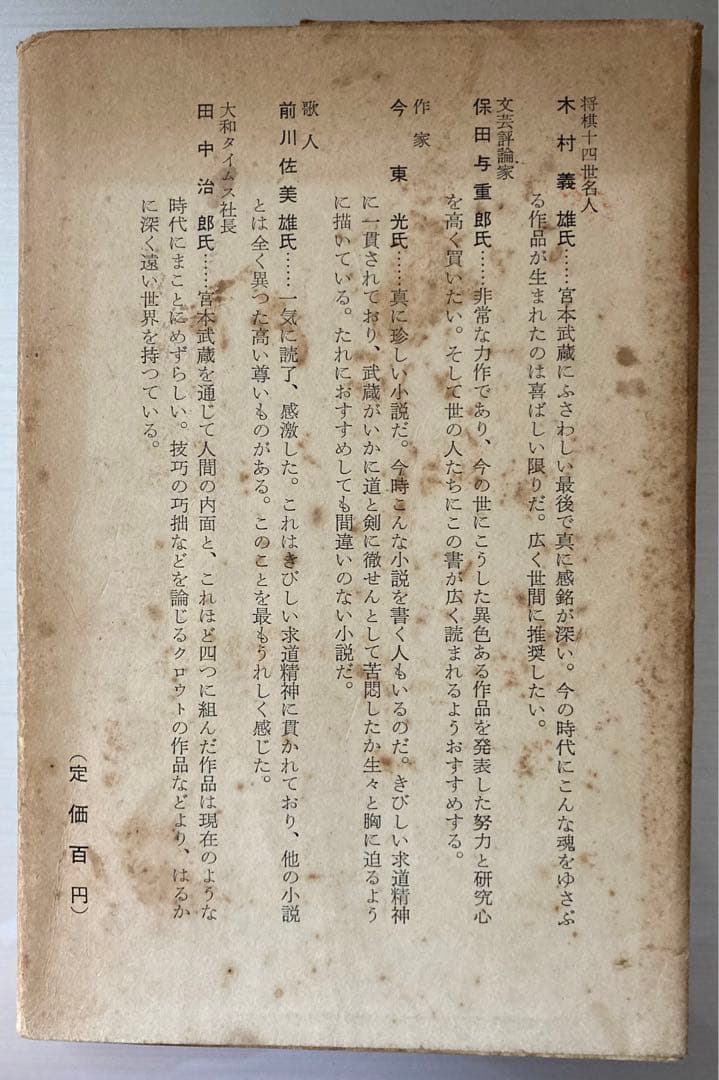 将棋十四世名人
木村義雄氏……宮本武蔵にふさわしい最後で真に感銘が深い。今の時代にこんな魂をゆさぶ
る作品が生まれたのは喜ばしい限りだ。広く世間に推奨したい。
文芸評論家
保田与重郎氏……非常な力作であり、今の世にこうした異色ある作品を発表した努力と研究心
を高く買いたい。そして世の人たちにこの書が広く読まれるようおすすめする。
作家
今東光氏……真に珍しい小説だ。今時こんな小説を書く人もいるのだ。きびしい求道精神
に一貫されており、武蔵がいかに道と剣に徹せんとして苦悶したか生々と胸に迫るよう
に描いている。たれにおすすめしても間違いのない小説だ。
歌人
前川佐美雄氏……一気に読了、感激した。これはきびしい求道精神に貫かれており、他の小説
とは全く異つた高い尊いものがある。このことを最もうれしく感じた。
大和タイムス社長
田中治郎氏……宮本武蔵を通じて人間の内面と、これほど四つに組んだ作品は現在のような
時代にまことにめずらしい。技巧の巧拙などを論じるクロウトの作品などより、はるか
に深く遠い世界を持つている。
（定価百円）